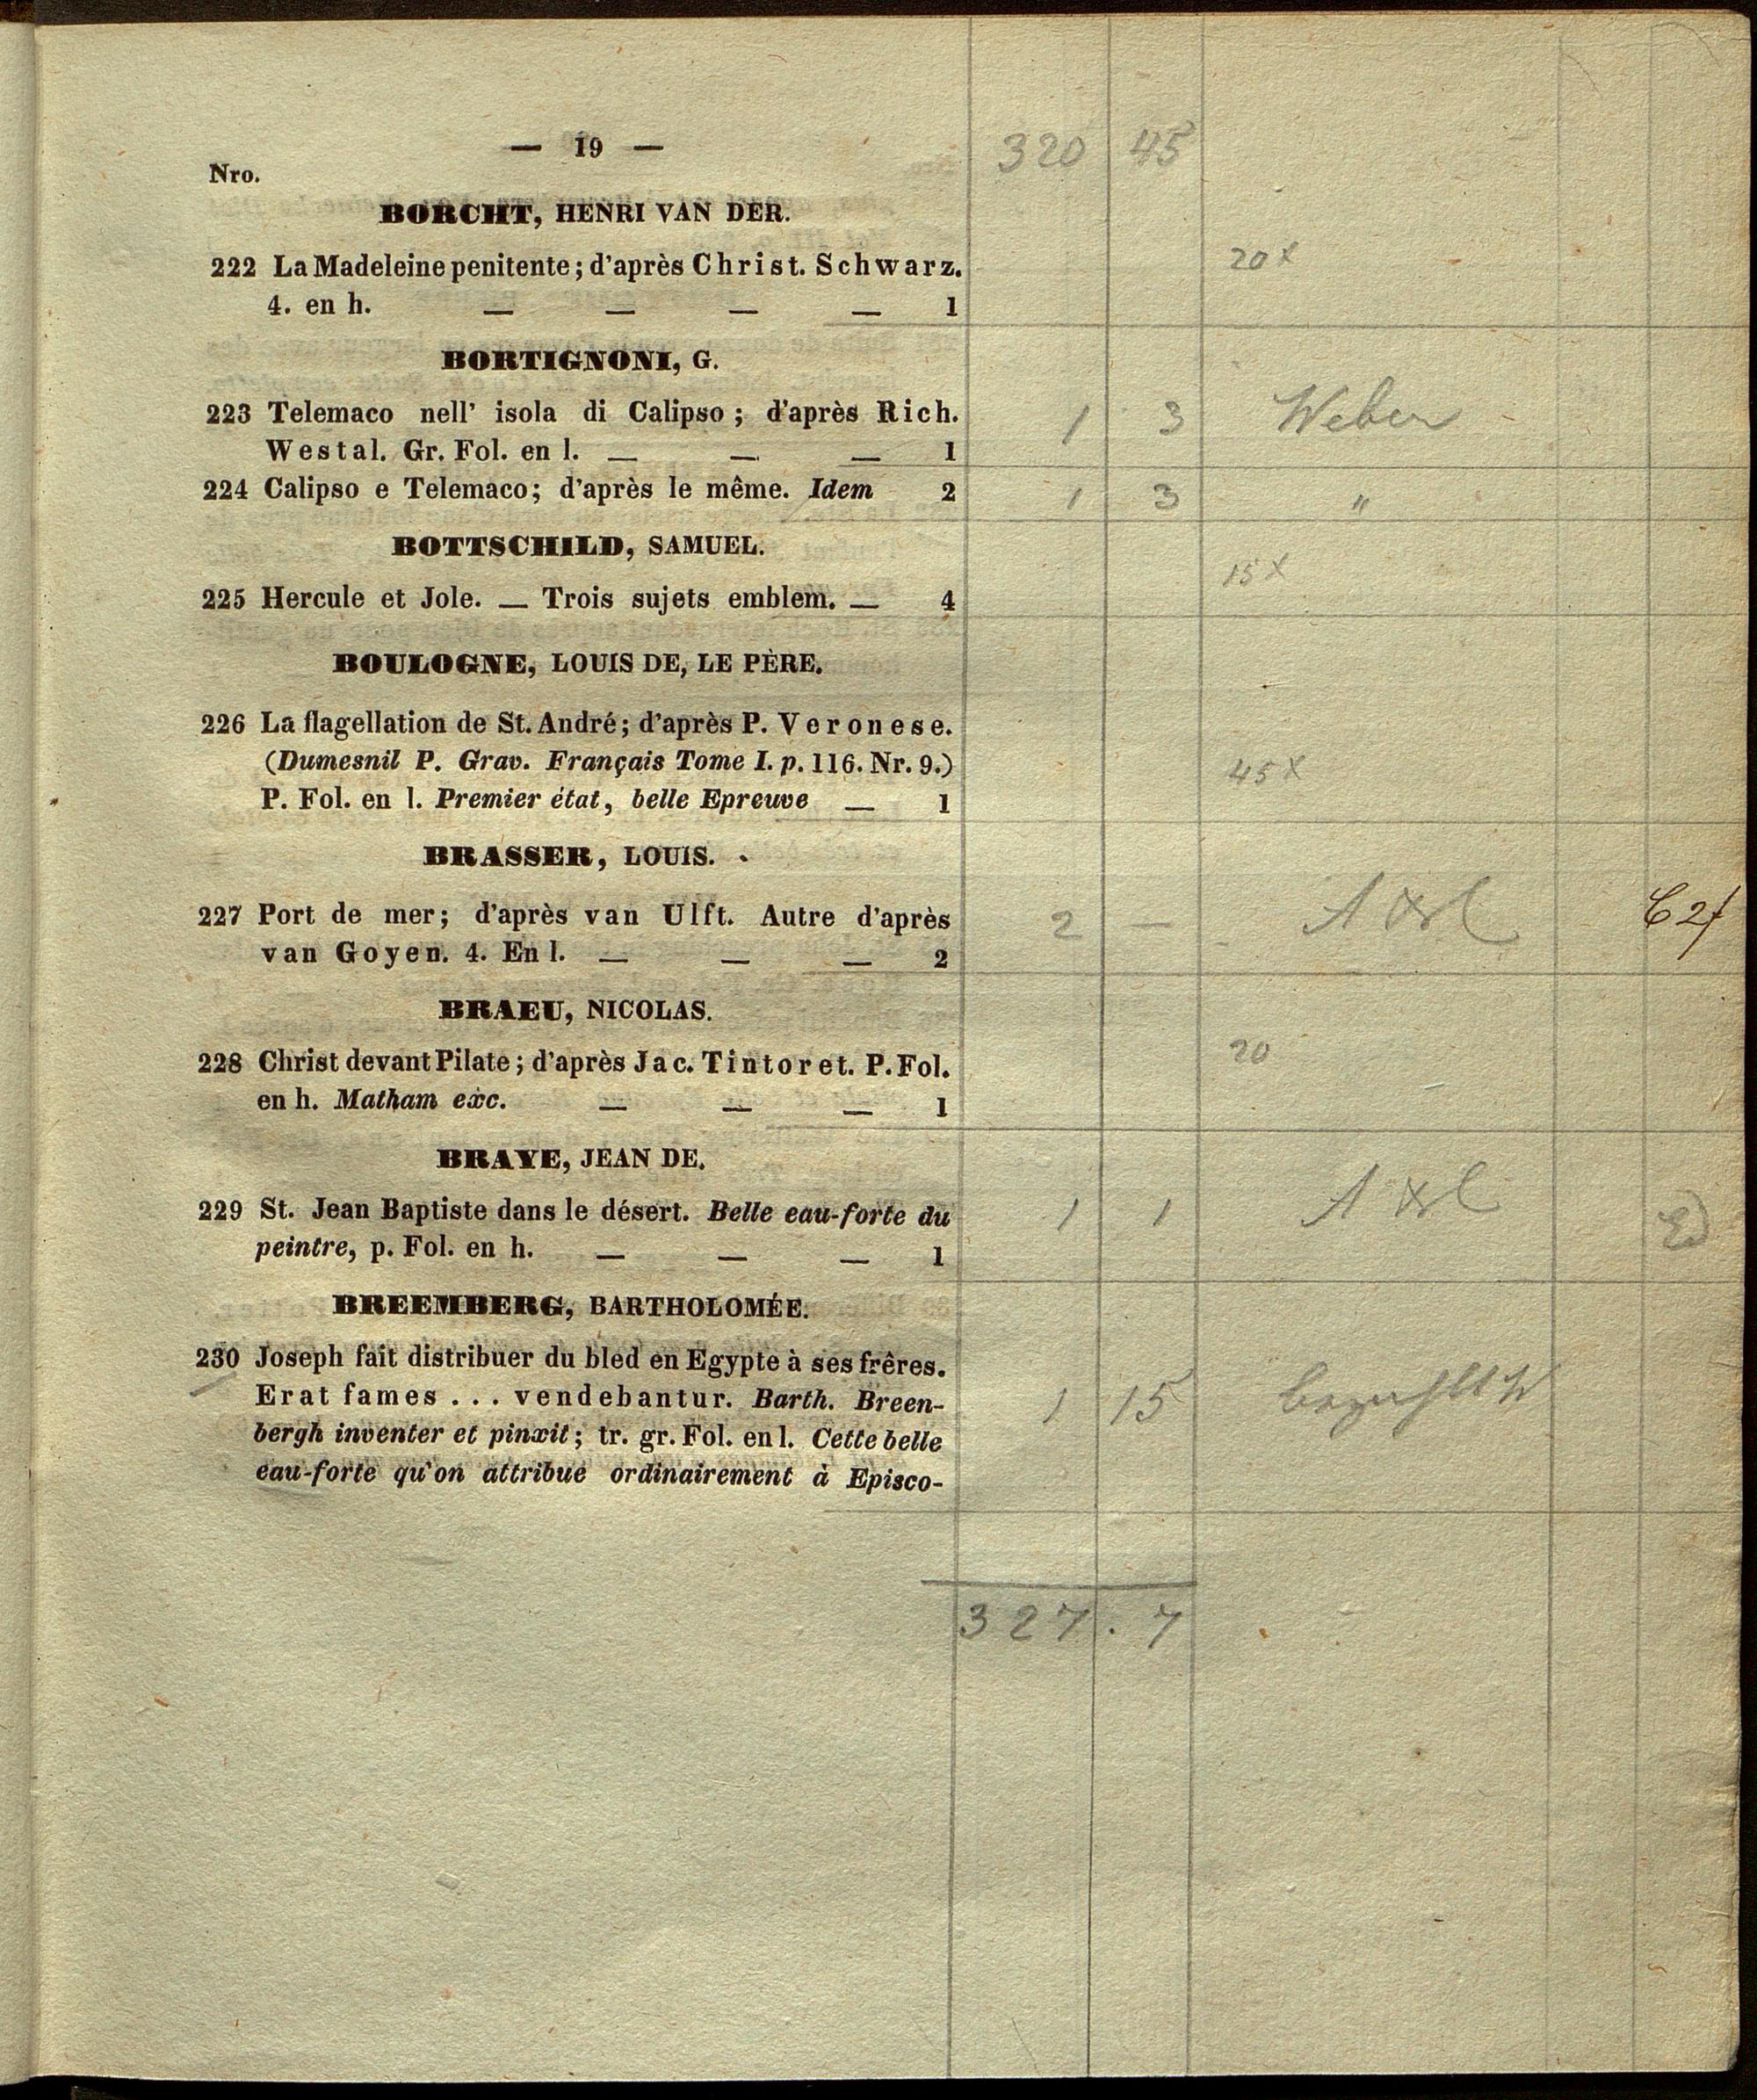 — 19 — 320 45
Nro.
BORCHT, HENRI VAN DER.
222 La Madeleine penitente; d'après Christ. Schwarz. 20 x
4. en h. — — — — 1
BORTIGNONI, G.
223 Telemaco nell' isola di Calipso; d'après Rich. 1 3 Weber
Westal. Gr. Fol. en l. — — — 1
224 Calipso e Telemaco; d'après le même. Idem 2 1 3 "
BOTTSCHILD, SAMUEL.
225 Hercule et Jole. — Trois sujets emblem. — 4 15 x
BOULOGNE, LOUIS DE, LE PÈRE.
226 La flagellation de St. André; d'après P. Veronese.
(Dumesnil P. Grav. Français Tome I. p. 116. Nr. 9.) 45 x
P. Fol. en l. Premier état, belle Epreuve — 1
BRASSER, LOUIS.
227 Port de mer; d'après van Ulft. Autre d'après 2 —
van Goyen. 4. En l. — — — 2
BRAEU, NICOLAS.
228 Christ devant Pilate; d'après Jac. Tintoret. P. Fol. 20
en h. Matham exc. — — — 1
BRAYE, JEAN DE.
229 St. Jean Baptiste dans le désert. Belle eau-forte du 1 1
peintre, p. Fol. en h. — — — 1
BREEMBERG, BARTHOLOMÉE.
230 Joseph fait distribuer du bled en Egypte à ses frêres.
Erat fames ... vendebantur. Barth. Breen- 1 15
bergh inventer et pinxit; tr. gr. Fol. en l. Cette belle
eau-forte qu'on attribue ordinairement à Episco-
327 . 7